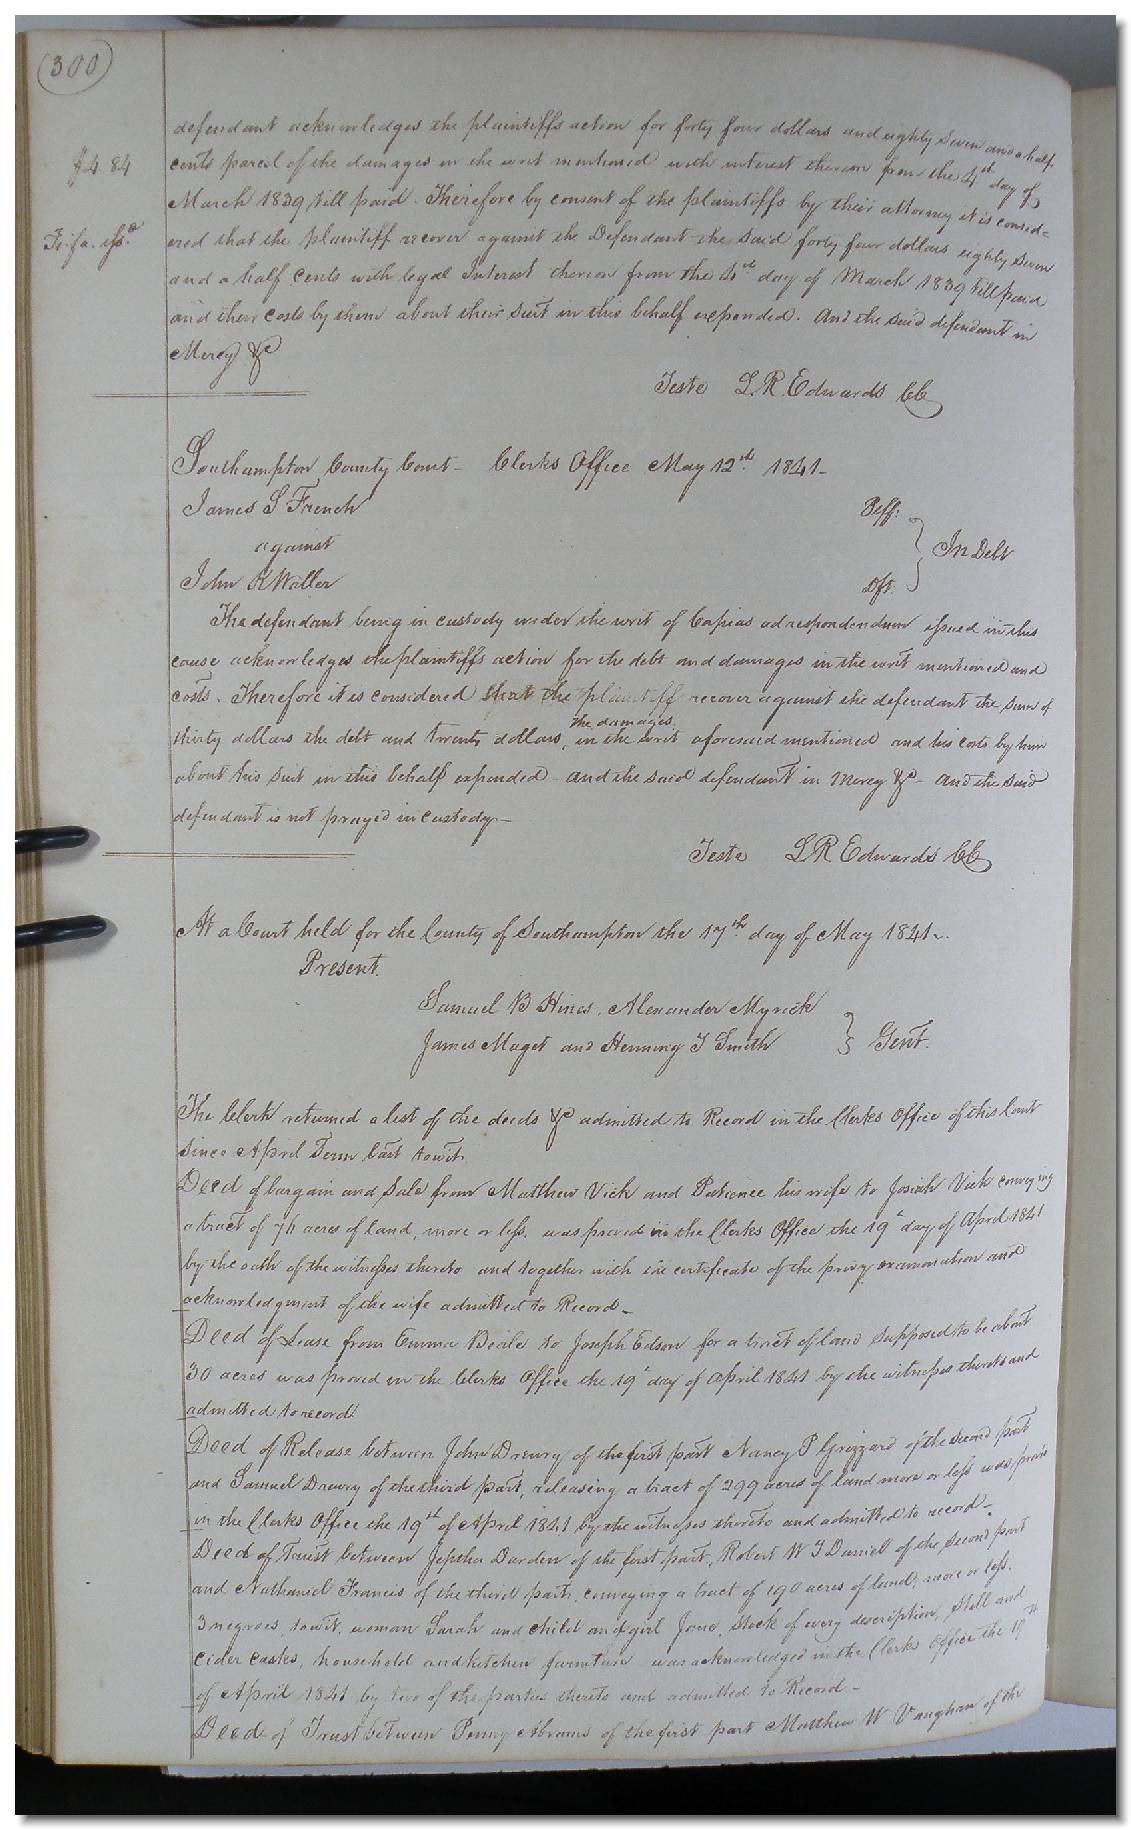 (300)
defendant acknowledges the plaintiffs action for forty four dollars and eighty seven and a half
$4.84
cents parcel of the damages in the writ mentioned with interest thereon from the 4th day of
March 1839 till paid. Therefore by consent of the plaintiffs by their attorney it is consid=
Fi. fa. issd.
ered that the plaintiff recover against the Defendant the said forty four dollars eighty seven
and a half cents with legal Interest thereon from the 4th day of March 1839 till paid
and their costs by them about their suit in this behalf expended. And the said defendant in
Mercy &c
Teste L. R. Edwards CC
Southampton County Court - Clerks Office May 12th 1841 -
James S French Plff.
against } In Debt
John R Waller Dft.
The defendant being in custody under the writ of Capias ad respondendum issued in this
cause acknowledges the plaintiffs action for the debt and damages in the writ mentioned and
costs. Therefore it is considered that the plaintiff recover against the defendant the sum of
the damages
thirty dollars the debt and twenty dollars, in the writ aforesaid mentioned and his costs by him
about his suit in this behalf expended - and the said defendant in Mercy &c - And the said
defendant is not prayed in custody. -
Teste L R Edwards CC
At a Court held for the County of Southampton the 17th day of May 1841 -
Present.
Samuel B Hines, Alexander Myrick
James Maget and Henning T Smith } Gent.
The Clerk returned a list of the deeds &c admitted to Record in the Clerks Office of this Court
since April Term last towit
Deed of bargain and Sale from Matthew Vick and Patience his wife to Josiah Vick conveying
a tract of 76 acres of land, more or less, was proved in the Clerks Office the 19th day of April 1841
by the oath of the witnesses thereto and together with the certificate of the privy examination and
acknowledgment of the wife admitted to Record -
Deed of Lease from Emma Beale to Joseph Edson for a tract of land supposed to be about
30 acres was proved in the Clerks Office the 19th day of April 1841 by the witnesses thereto and
admitted to record
Deed of Release between John Drewry of the first part Nancy P Grizzard of the second part
and Samuel Drewry of the third part, releasing a tract of 299 acres of land more or less was proved
in the Clerks Office the 19th of April 1841 by the witnesses thereto and admitted to record -
Deed of Trust between Jeptha Darden of the first part, Robert W J Daniel of the second part
and Nathaniel Francis of the third part, conveying a tract of 190 acres of land, more or less,
3 negroes, towit, woman Sarah and child and girl Jane, stock of every description, Still and
cider casks, household and kitchen furniture was acknowledged in the Clerks Office the 19th
of April 1841 by two of the parties thereto and admitted to Record -
Deed of Trust between Penny Abrams of the first part Matthew W Vaughan of the